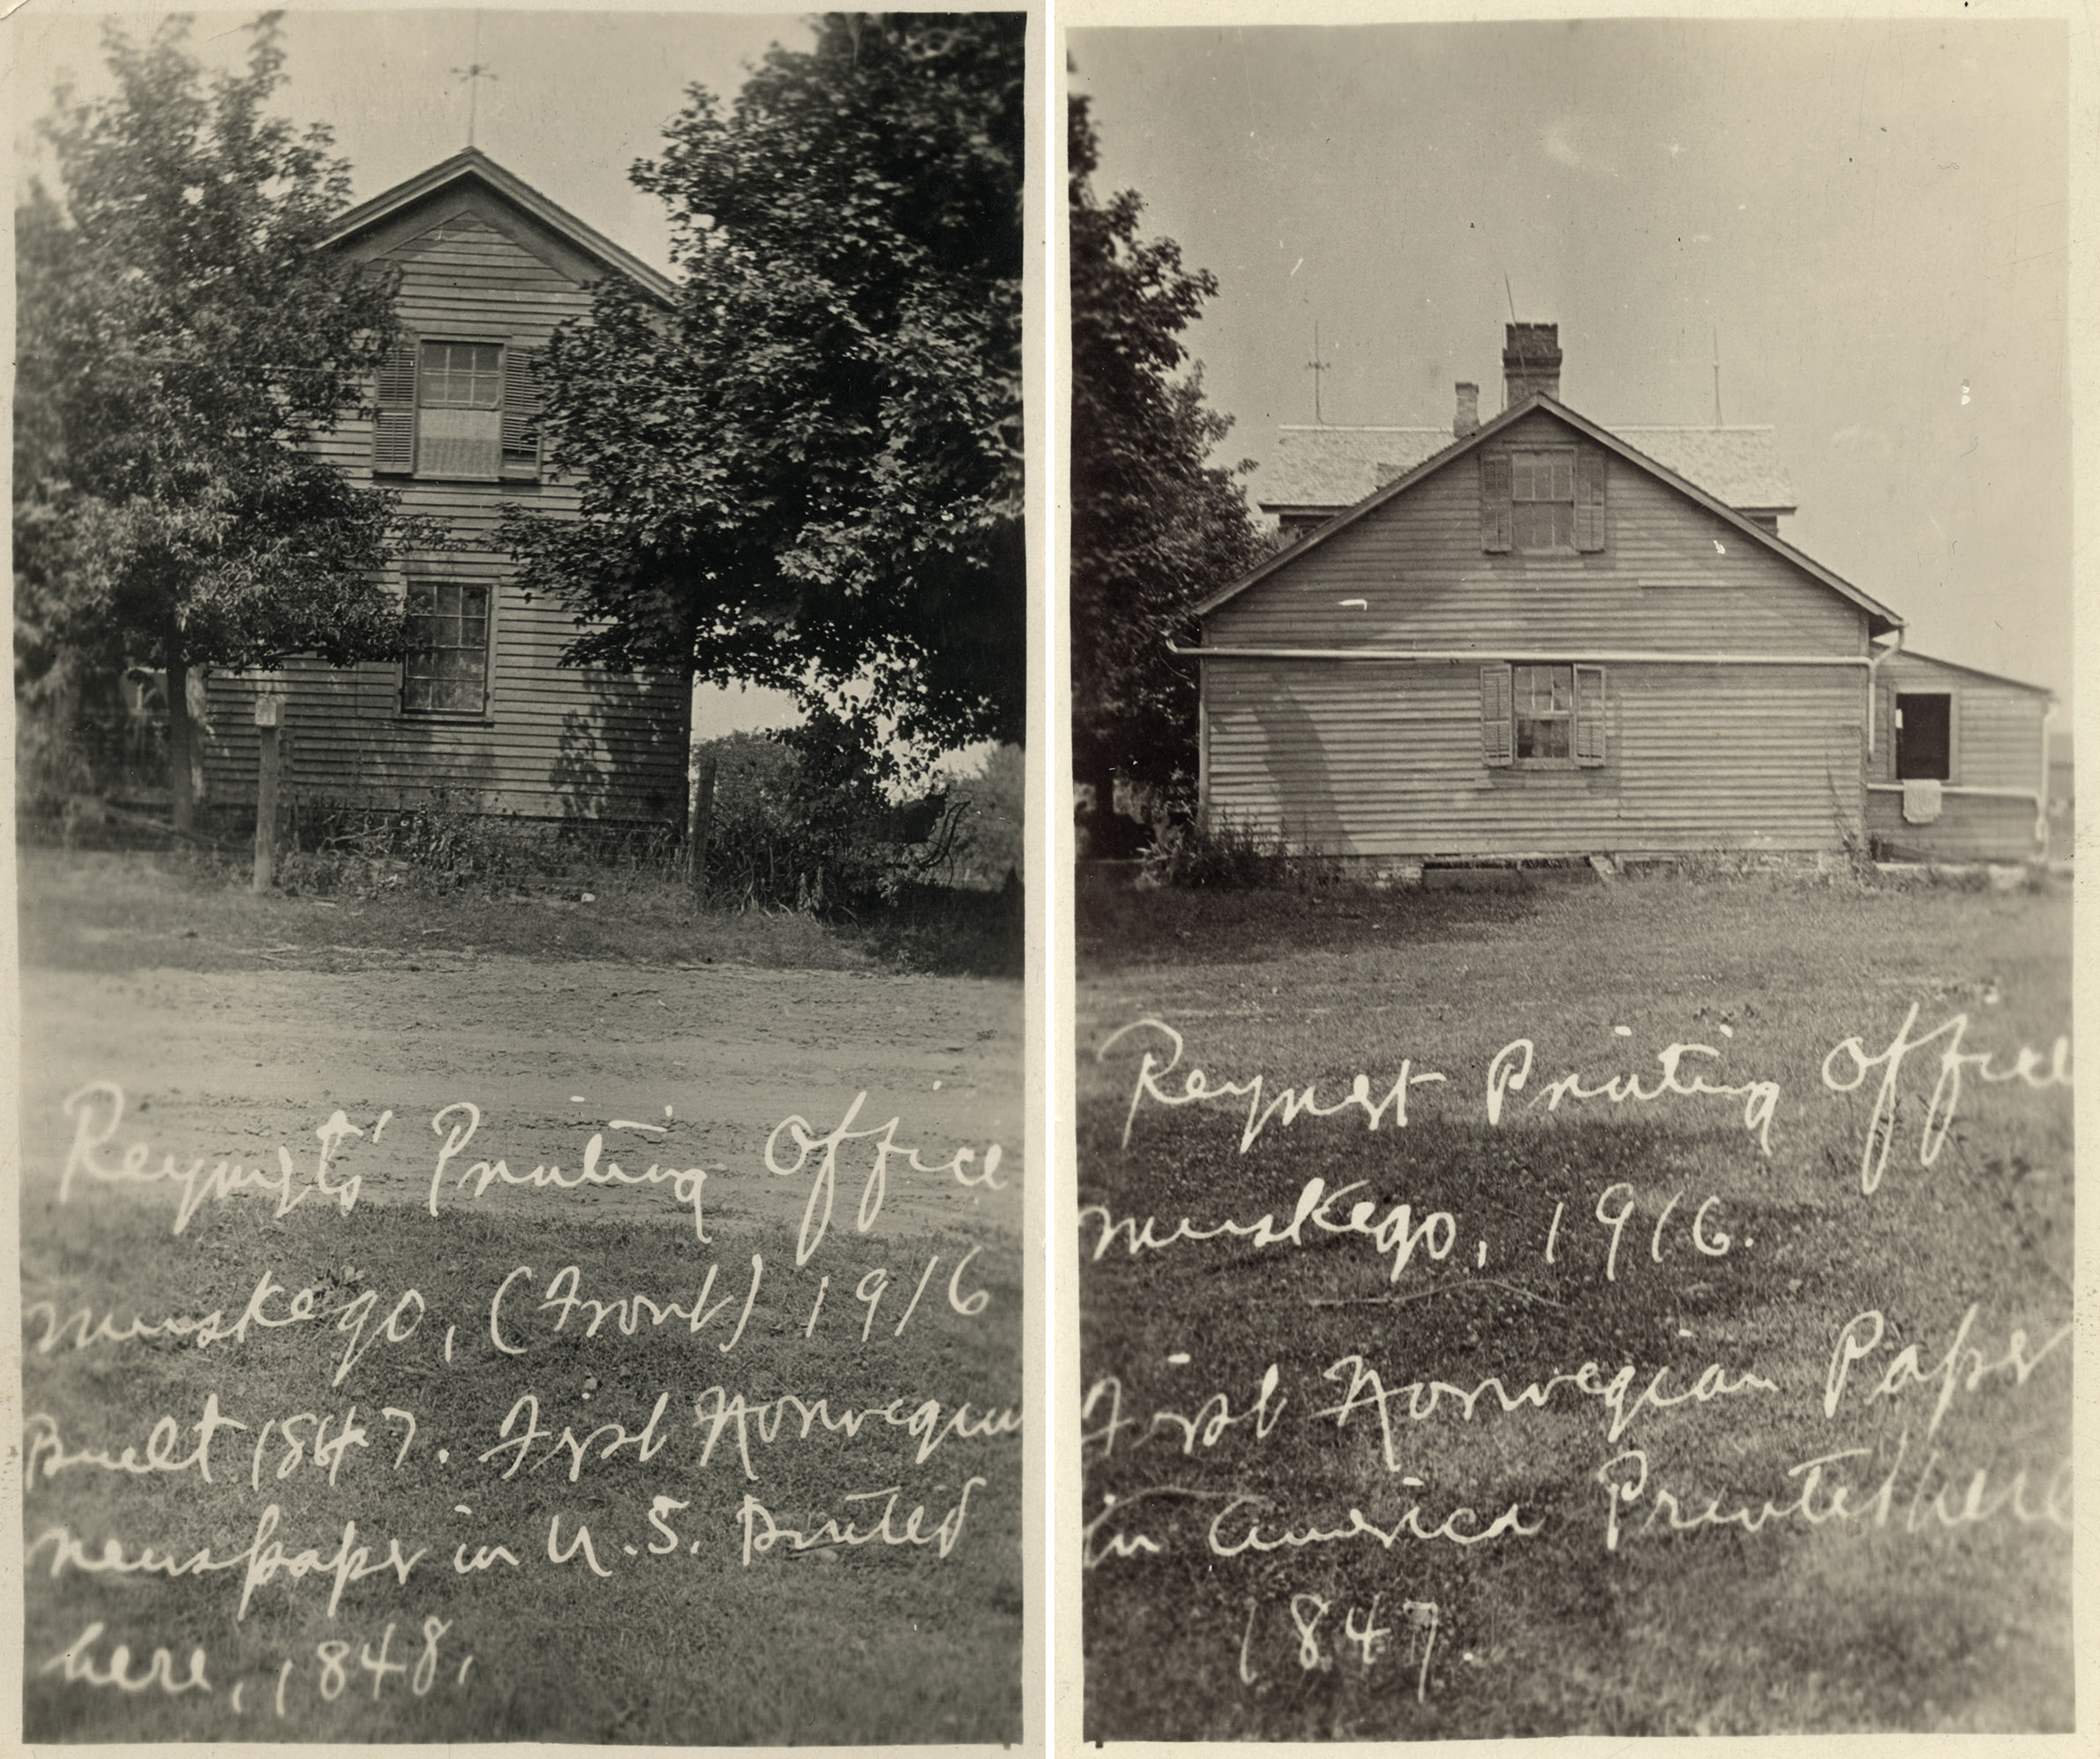 Reymerts' Printing Office
Muskego, (Front) 1916
Built 1847. First Norwegian
newspaper in U.S. Printed
here, 1848,
Reymert Printing Office
Muskego, 1916.
First Norwegian Paper
in America Printed here
1847.